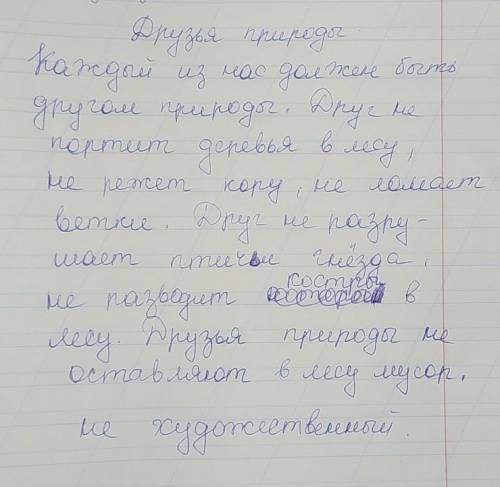 Друзья природы.
Каждый из нас должен быть
другом природы. Друг не
портит деревья в лесу,
не режет кору, не ломает
ветки. Друг не разру-
шает птичьи гнёзда,
не разводит костры в
лесу. Друзья природы не
оставляют в лесу мусор.
не художественный.